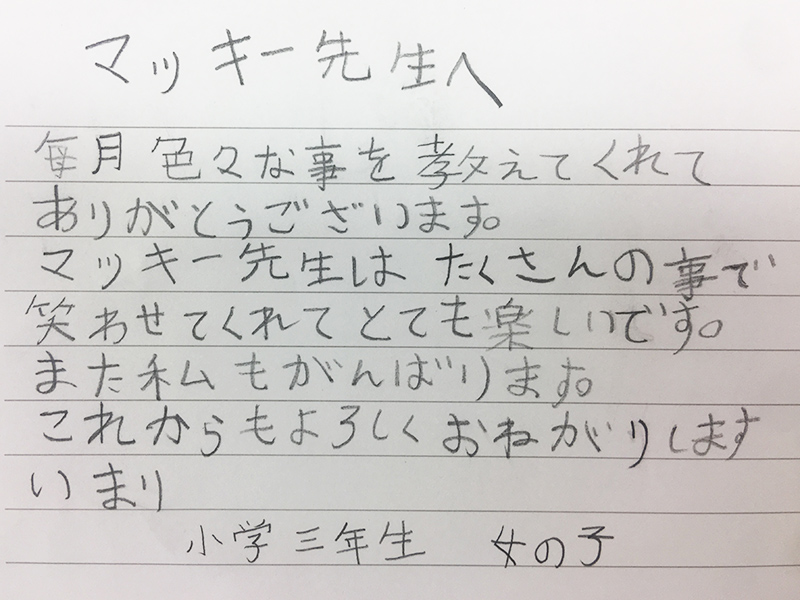 マッキー先生へ
毎月色々な事を教えてくれて
ありがとうございます。
マッキー先生は たくさんの事で
笑わせてくれてとても楽しいです。
また私もがんばります。
これからもよろしくおねがりします
いまり
小学三年生 女の子